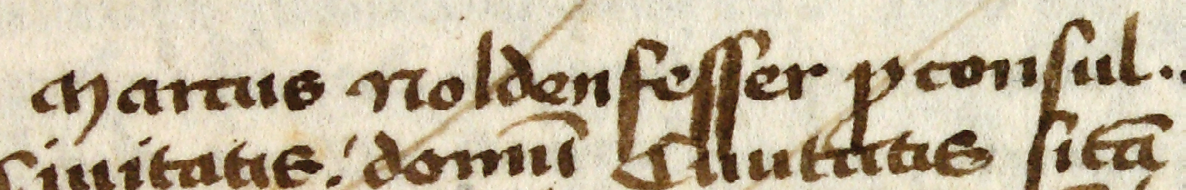 Martus Noldenfesser ꝓconsul..
Ciuitatis: domū Ciuitatis sitā